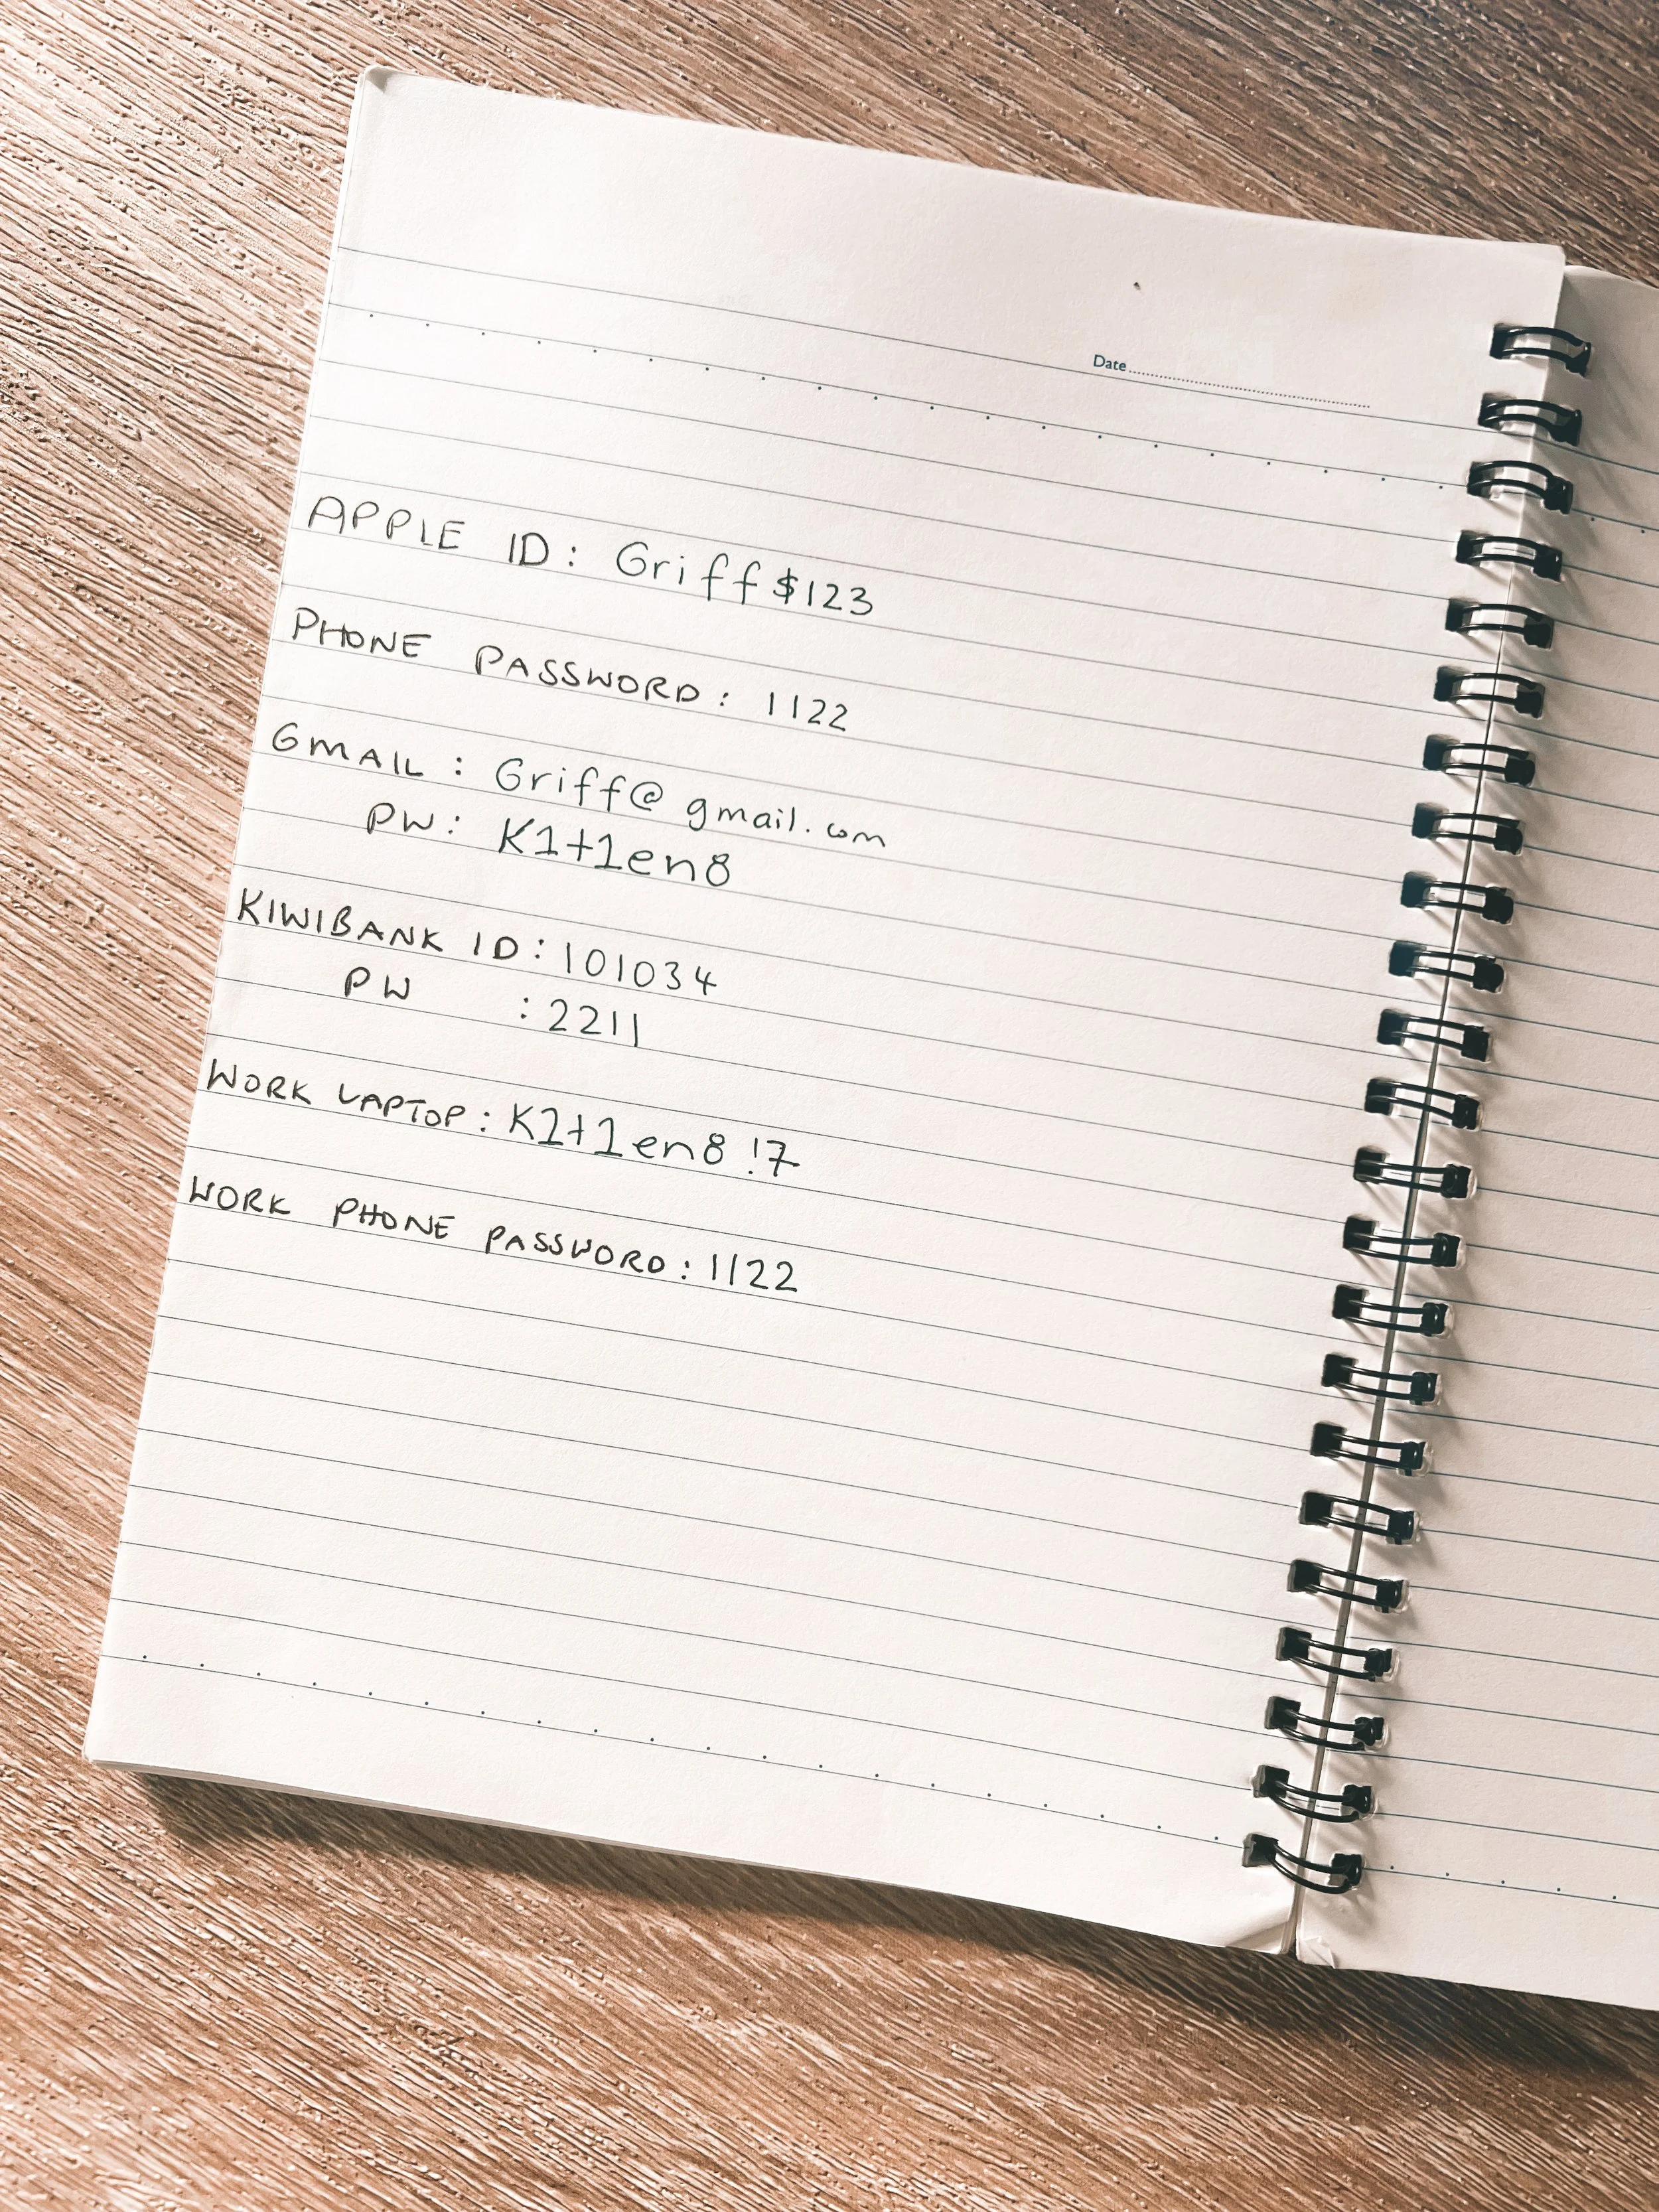 Date
APPLE ID: Griff$123
PHONE PASSWORD: 1122
GMAIL: Griff@gmail.com
PW: K1t1en8
KIWIBANK ID: 101034
PW : 2211
WORK LAPTOP: K1t1en8!7
WORK PHONE PASSWORD: 1122